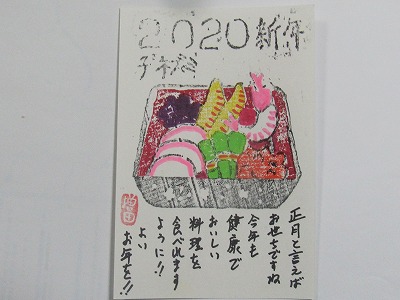 2020 新年
子ネズミ
正月と言えば
お せちですね
今年も
健康で
おいしい
料理を
食べれます
ように!!
よい
お年を!!